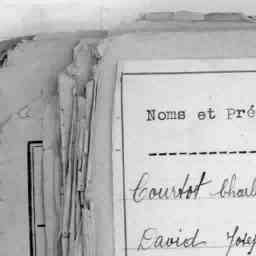 Noms et Pré
Courtot Charl
David Josep